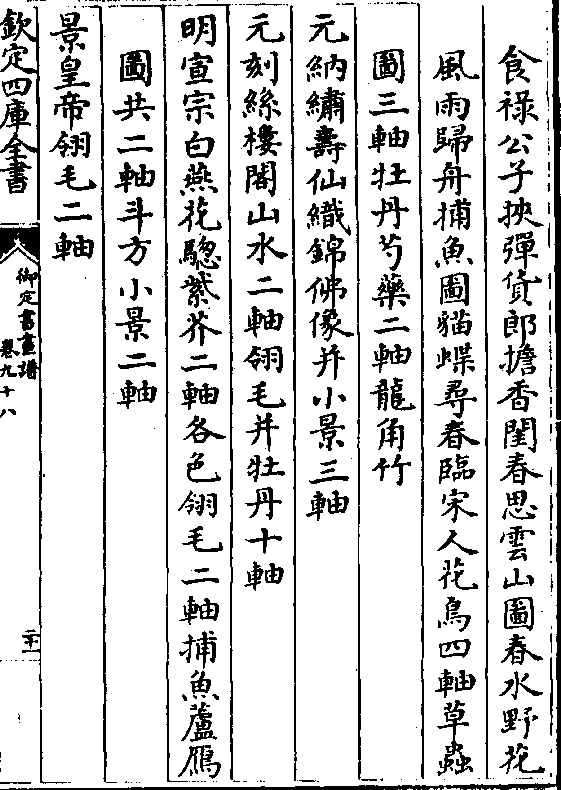 食祿公子挾彈貨郎擔香閨春思雲山圖春水野花
風雨歸舟捕魚圖貓蝶尋春臨宋人花鳥四軸草蟲
圖三軸牡丹芍藥二軸龍角竹
元納繡壽仙織錦佛像并小景三軸
元刻絲樓閣山水二軸翎毛并牡丹十軸
明宣宗白燕花驄紫芥二軸各色翎毛二軸捕魚蘆鴈
圖共二軸斗方小景二軸
景皇帝翎毛二軸
欽定四庫全書
御定書畫譜
卷九十八